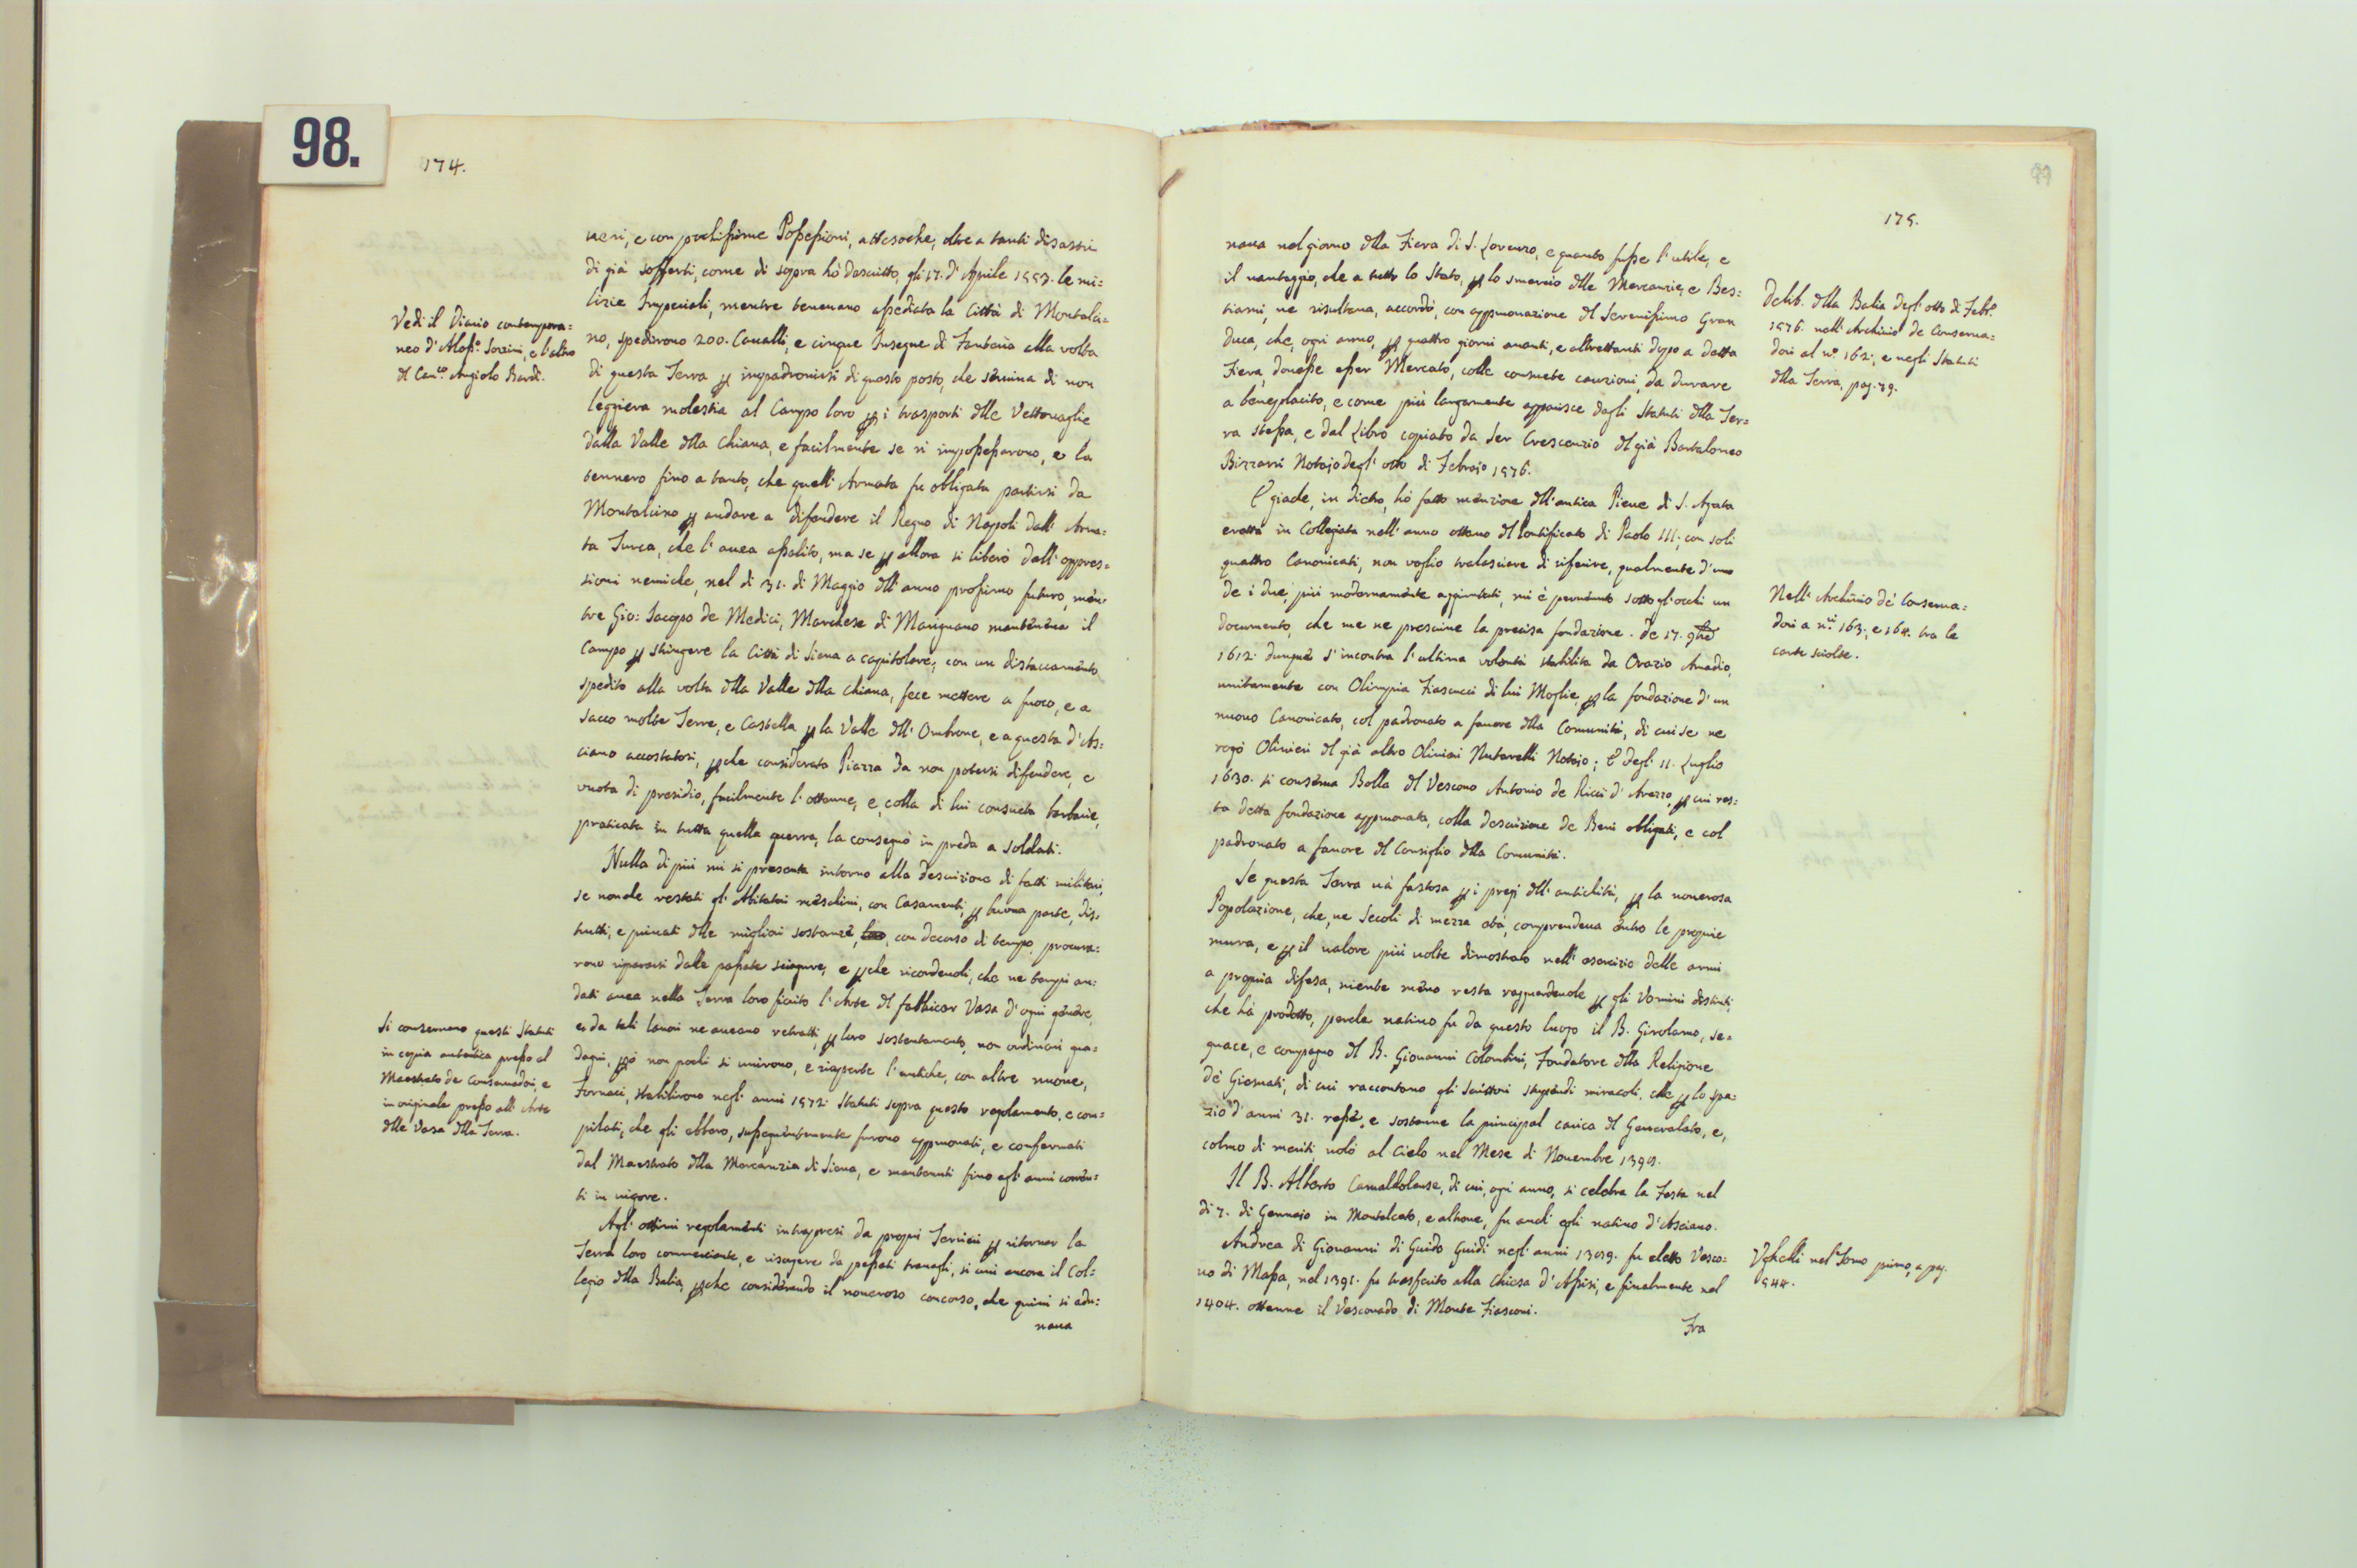 98.
174.
neri, e con pochissime Possessioni, attesoche, oltre a tanti disastri
di già sofferti, come di sopra hò descritto, gli 17. d'Aprile 1553. le mi=
lizie Imperiali, mentre tenevano assediata la Città di Montalci=
no, spedirono 200. Cavalli, e cinque Insegne di Fanteria alla volta
di questa Terra p impadronirsi di questo posto, che serviva di non
leggiera molestia al Campo loro p i trasporti dlle Vettovaglie
dalla Valle dlla Chiana, e facilmente se n' impossessarono, e la
tennero fino a tanto, che quell' Armata fu obligata partirsi da
Montalcino p andare a difendere il Regno di Napoli dall' Arma=
ta Turca, che l'avea assalito, ma se p allora si liberò dall' oppres=
sioni nemiche, nel dì 31. di Maggio dll' anno prossimo futuro, men=
tre Gio: Jacopo de Medici, Marchese di Marignano manteneva il
Campo p stringere la Città di Siena a capitolare, con un distaccamento
spedito alla volta dlla Valle dlla Chiana, fece mettere a fuoco, e a
sacco molte Terre, e Castella p la Valle dll' Ombrone, e a questa d'As=
ciano accostatosi, pche considerato Piazza da non potersi difendere, e
vuota di presidio, facilmente l'ottenne, e, colla di lui consueta barbarie,
praticata in tutta quella guerra, la consegnò in preda a soldati.
Nulla di più mi si presenta intorno alla descrizione di fatti militari,
se nonche restati gl' Abitatori meschini, con Casamenti, p buona parte, dis=
trutti, e privati dlle migliori sostanze, con decorso di tempo, procura=
rono ripararsi dalle passate sciagure, e pche ricordevoli, che ne tempi an=
dati avea nella Terra loro fiorito l'Arte dl fabbricar Vasa d'ogni genere,
e, da tali lavori ne aveano retratti, p loro sostentamento, non ordinari gua=
dagni, pò non pochi si unirono, e riaperte l'antiche, con altre nuove,
Fornaci, stabilirono negl' anni 1572. Statuti sopra questo regolamento, e com=
pilati, che gli ebbero, susseguentemente furono approvati, e confermati
dal Maestrato dlla Mercanzia di Siena, e mantenuti fino agl' anni corren=
ti in vigore.
Agl' ottimi regolamenti intrapresi da propri Terrieri p ritornar la
Terra loro commerciante, e risorgere da passati travagli, si unì ancora il Col=
legio dlla Balia, pche considerando il numeroso concorso, che quivi si adu=
nava
Vedi il Diario contempora=
neo d'Aless.º Sozzini, e l'altro
dl Can.co Angiolo Bardi.
Si conservano questi Statuti
in copia autentica presso al
Maestrato de Conservadori, e
in originale presso all' Arte
dlle Vasa dlla Terra.
99
175.
nava nel giorno dlla Fiera di S. Lorenzo, e quanto fusse l'utile, e
il vantaggio, che a tutto lo Stato, p lo smercio dlle Mercanzie, e Bes=
tiami, ne risultava, accordò, con approvazione dl Serenissimo Gran
Duca, che, ogni anno, p quattro giorni avanti, e altrettanti dopo a detta
Fiera, dovesse esser Mercato, colle consuete cauzioni, da durare
a beneplacito, e come più largamente apparisce dagli Statuti dlla Ter=
ra stessa, e dal Libro copiato da Ser Crescenzio dl già Bartalomeo
Bizzarri Notajo degl' otto di Febrajo 1576.
E giache, in dietro, hò fatto menzione dll' antica Pieve di S. Agata
eretta in Collegiata nell' anno ottavo dl Pontificato di Paolo III; con soli
quattro Canonicati, non voglio tralasciare di riferire, qualmente d'uno
de i due, più modernamente aggiuntati, mi è pervenuto sotto gl' occhi un
documento, che me ne prescrive la precisa fondazione. De 17. 9bre
1612. dunque s'incontra l'ultima volontà stabilita da Orazio Amadio,
unitamente con Olimpia Fiascucci di lui Moglie, p la fondazione d'un
nuovo Canonicato, col padronato a favore dlla Comunità, di cui se ne
rogò Olivieri dl già altro Olivieri Nutarelli Notajo; E degl' 11. Luglio
1630. si conserva Bolla dl Vescovo Antonio de Ricci d'Arezzo, p cui res=
ta detta fondazione approvata, colla descrizione de Beni obligati, e col
padronato a favore dl Consiglio dlla Comunità.
Se questa Terra và fastosa p i pregj dll' antichità, p la numerosa
Popolazione, che, ne Secoli di mezza età, comprendeva entro le proprie
mura, e p il valore più volte dimostrato nell' esercizio delle armi
a propria difesa, niente meno resta ragguardevole p gli Vomini distinti,
che hà prodotto, perche nativo fu da questo luogo il B. Girolamo, se=
guace, e compagno dl B. Giovanni Colombini, Fondatore dlla Religione
de' Giesuati, di cui raccontano gli Scrittori stupendi miracoli, che p lo spa=
zio d'anni 31. resse, e sostenne la principal carica dl Generalato, e,
colmo di meriti, volò al Cielo nel Mese di Novembre 1398.
Il B. Alberto Camaldolense, di cui, ogni anno, si celebra la Festa nel
dì 7. di Gennajo in Montalceto, e altrove, fu anch' egli nativo d'Asciano.
Andrea di Giovanni di Guido Guidi negl' anni 1389. fu eletto Vesco=
vo di Massa, nel 1391. fu trasferito alla Chiesa d'Assisi, e finalmente nel
1404. ottenne il Vescovado di Monte Fiasconi.
Fra
Delib. dlla Balia degl' otto di Feb.º
1576. nell' Archivio de Conserva=
dori al nº. 162; e negli Statuti
dlla Terra, pag. 79.
Nell' Archivio de' Conserva=
dori a n.ri 163; e 164. tra le
carte sciolte.
Vghelli nel Tomo primo, a pag.
544.